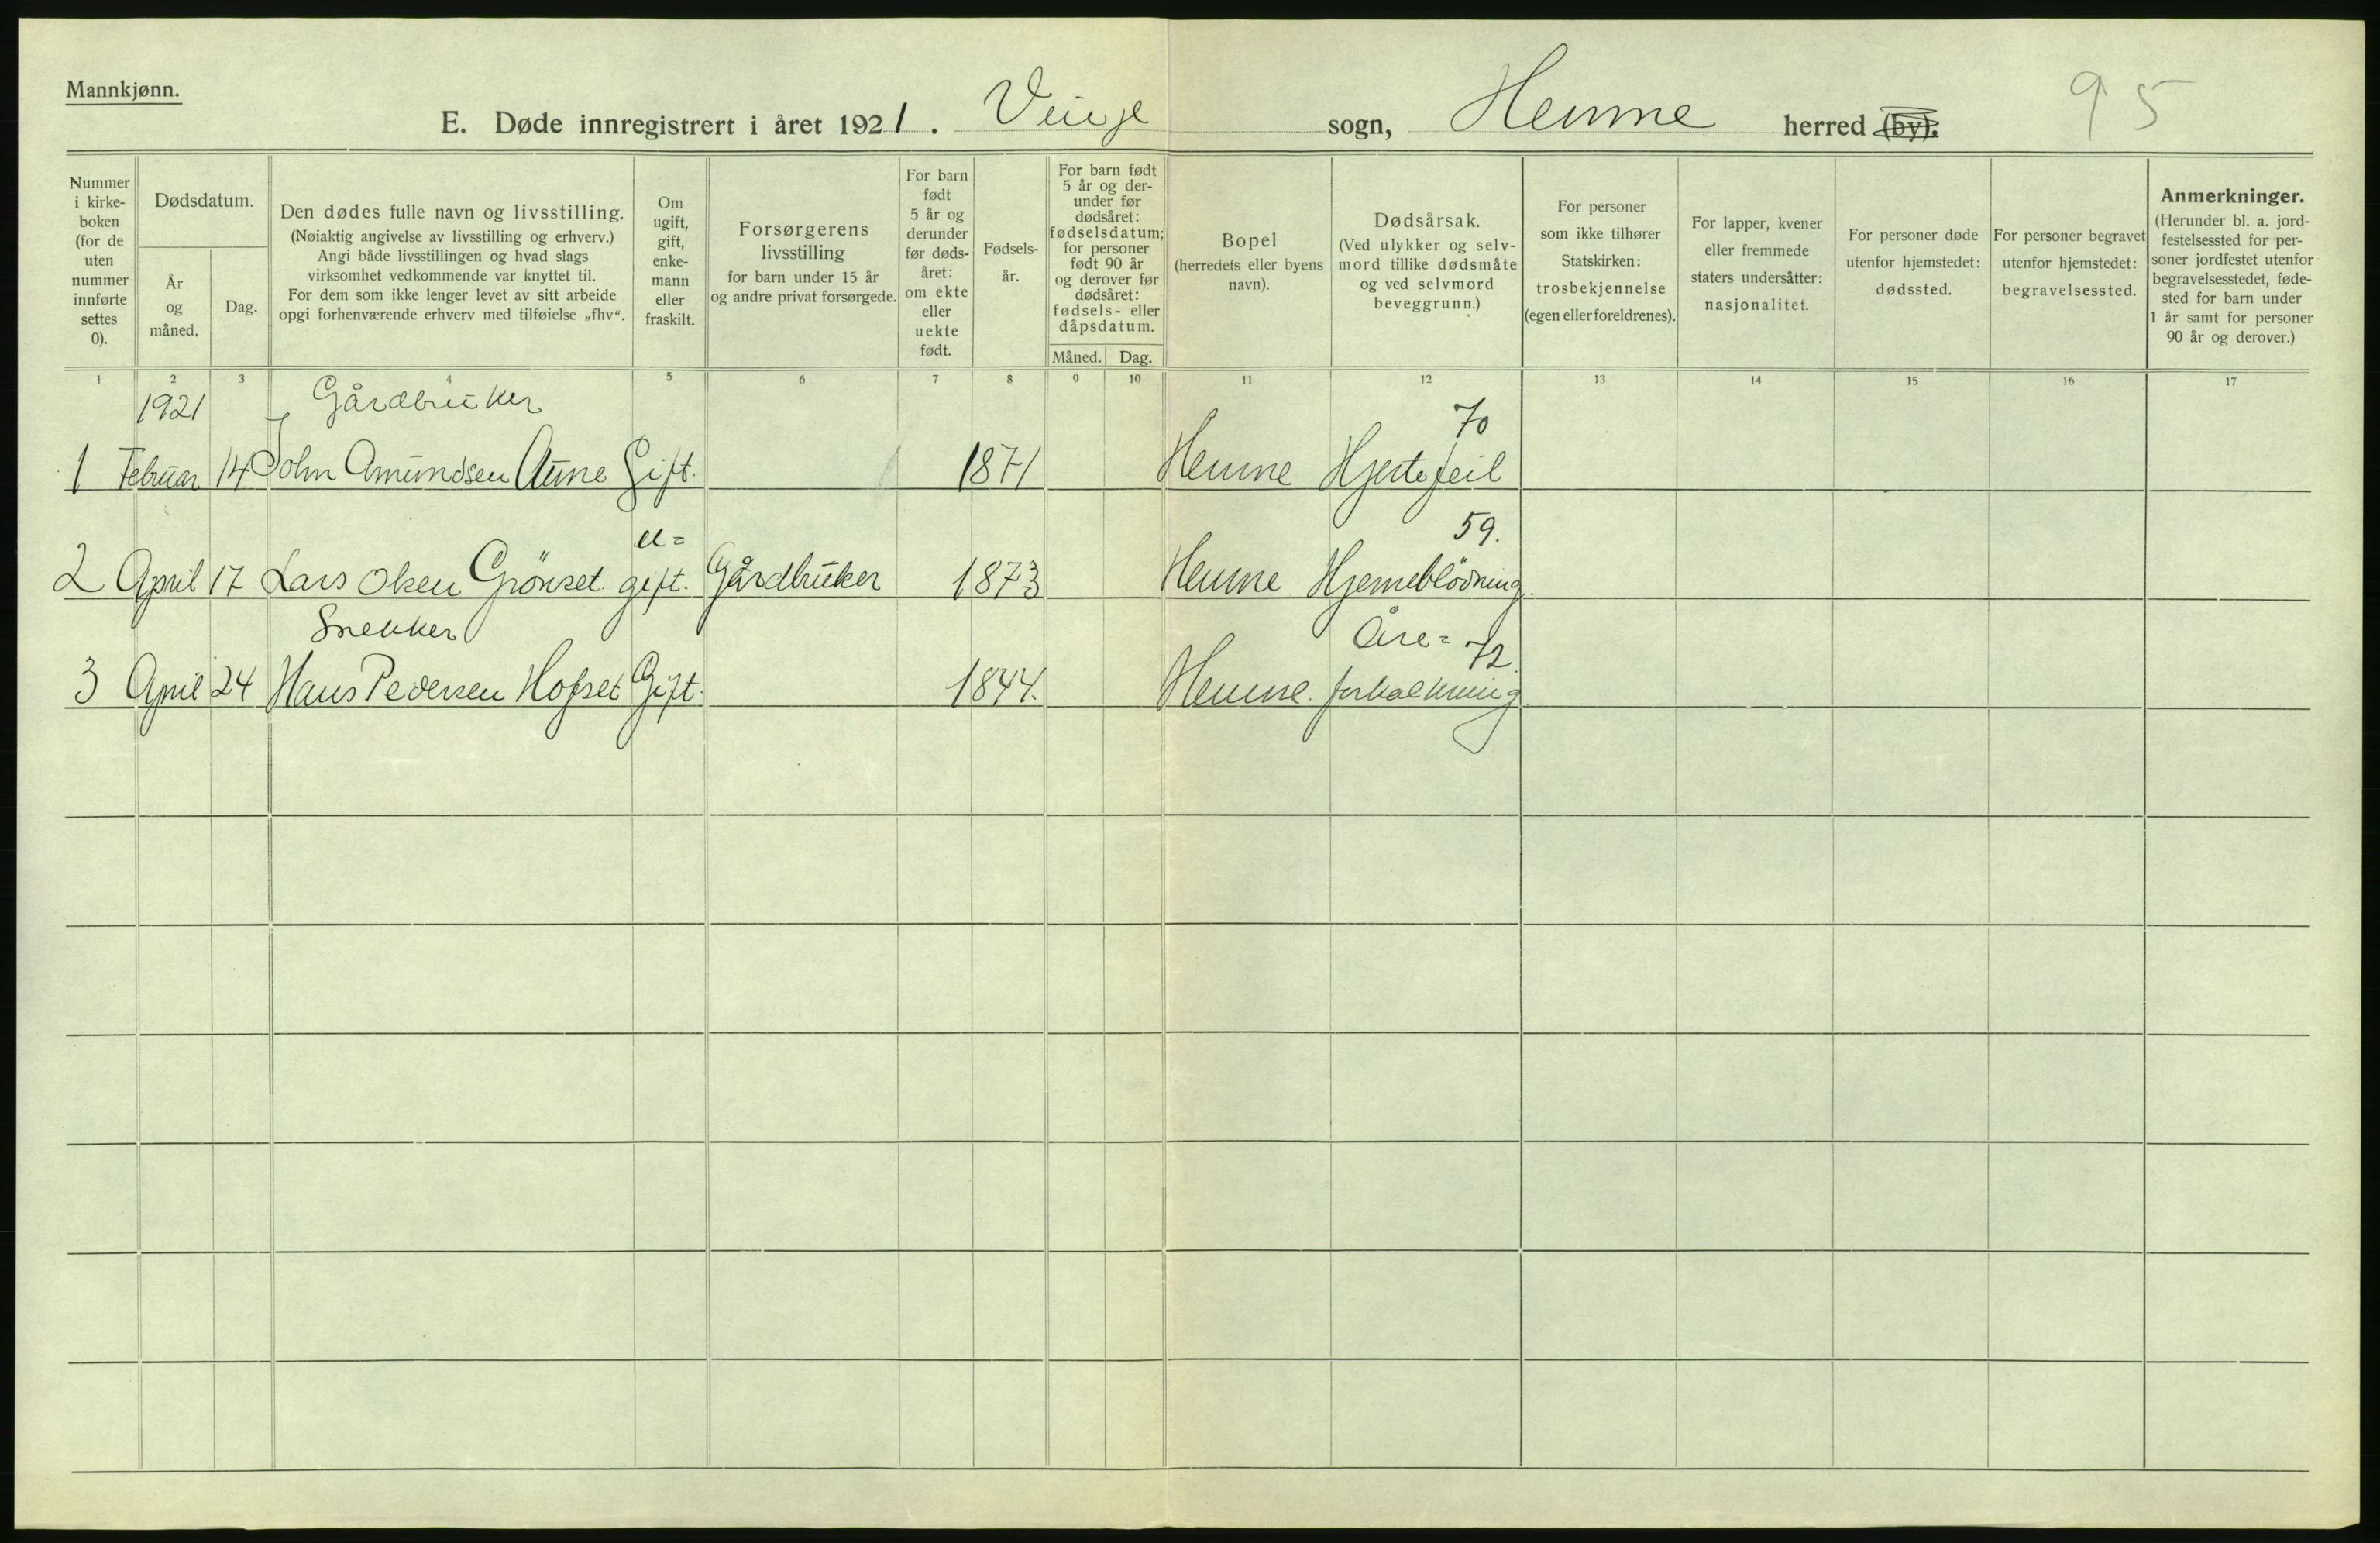 Mannkjønn.
E. Døde innregistrert i året 1921. Vinje sogn, Hemne herred (by).
95
Nummer i kirke-boken (for de uten nummer innførte settes 0).
Dødsdatum.
År og måned.
Dag.
Den dødes fulle navn og livsstilling.
(Nøiaktig angivelse av livsstilling og erhverv.)
Angi både livsstillingen og hvad slags
virksomhet vedkommende var knyttet til.
For dem som ikke lenger levet av sitt arbeide
opgi forhenværende erhverv med tilføielse „fhv“.
Om ugift, gift, enke-mann eller fraskilt.
Forsørgerens livsstilling
for barn under 15 år
og andre privat forsørgede.
For barn født 5 år og derunder før døds-året: om ekte eller uekte født.
Fødsels-år.
For barn født 5 år og der-under før dødsåret: fødselsdatum; for personer født 90 år og derover før dødsåret: fødsels- eller dåpsdatum.
Måned. Dag.
Bopel
(herredets eller byens navn).
Dødsårsak.
(Ved ulykker og selv-mord tillike dødsmåte og ved selvmord beveggrunn.)
For personer som ikke tilhører Statskirken: trosbekjennelse (egen eller foreldrenes).
For lapper, kvener eller fremmede staters undersåtter: nasjonalitet.
For personer døde utenfor hjemstedet: dødssted.
For personer begravet utenfor hjemstedet: begravelsessted.
Anmerkninger.
(Herunder bl. a. jord-festelsessted for per-soner jordfestet utenfor begravelsesstedet, føde-sted for barn under 1 år samt for personer 90 år og derover.)
1 2 3 4 5 6 7 8 9 10 11 12 13 14 15 16 17
1921 Gårdbruker 70
1 Februar 14 John Amundsen Aune Gift. 1871 Hemne Hjertefeil
u= 59.
2 April 17 Lars Olsen Grönset gift. Gårdbruker 1873 Hemne Hjerneblödning.
Snekker Åre= 72.
3 April 24 Hans Pedersen Hofset Gift. 1844. Hemne. forkalkning.